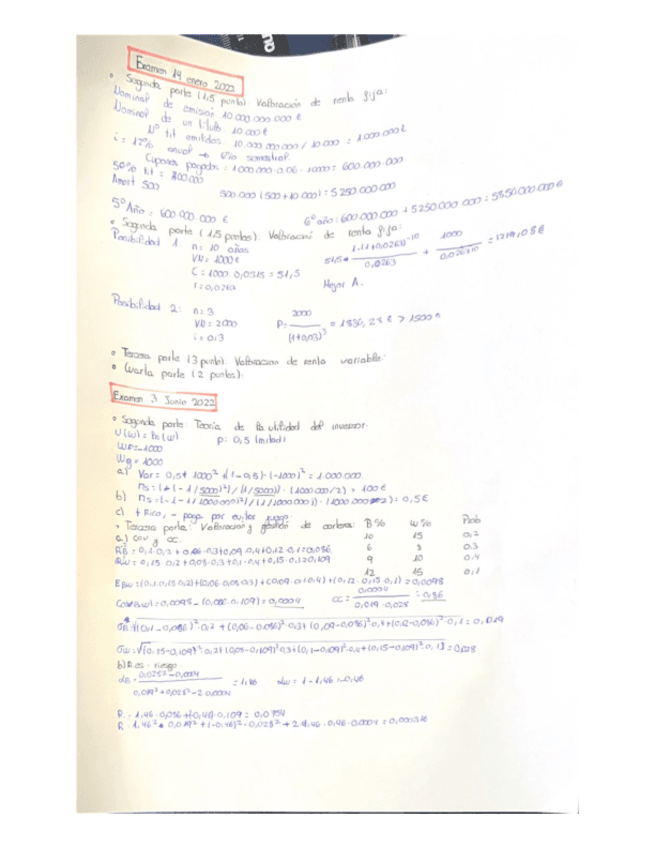 Examen 14 enero 2022
• Segunda parte (1,5 punto): Valoración de renta fija:
Nominal de emisión 10.000.000.000 €
Nominal de un título 10.000 €
Nº tit emitidos: 10.000.000.000 / 10.000 = 1.000.000
i = 12% anual → 6% semestral.
Cupones pagados: 1.000.000 · 0.06 · 1000 = 600.000.000
50% tit =
Amort 500
500.000 (500 + 10.000) = 5250.000.000
5º Año = 600.000.000 €
6º año: 600.000.000 + 5250.000.000 = 5850.000.000 €
• Segunda parte (1,5 puntos): Valoración de renta fija:
Posibilidad 1. n = 10 años
VN = 1000 €
C = 1000 · 0,0515 = 51,5
51,5 ·
0,0263
+
1000
= 1219,08 €
Mejor A.
Posibilidad 2: n = 3
VN = 2000
i = 0,3
P =
2000
(1+0,03)³
= 1830,28 € > 1500 €
• Tercera parte (3 punto): Valoración de renta variable:
• Cuarta parte (2 puntos):
Examen 3 Junio 2022
• Segunda parte: Teoría de la utilidad del inversor.
U(w) = Ln(w) p: 0,5 (mitad)
Wg = 1000
a) Var = 0,5 · 1000² + (1 - 0,5) · (-1000)² = 1.000.000
= 100 €
b)
= 0,5 €
c) + Rico, - paga por evitar juego.
• Tercera parte: Valoración y gestión de cartera: B% W% Prob
a) cov y cc.
10 15 0,2
6 8 0.3
9 10 0.4
12 15 0,1
RB = 0,1·0,2 + 0,06·0,3 + 0,09·0,4 + 0,12·0,1 = 0,086
RW = 0,15·0,2 + 0,08·0,3 + 0,1·0,4 + 0,15·0,1 = 0,109
EBW = (0,1·0,15·0,2) + (0,06·0,08·0,3) + (0,09·0,1·0,4) + (0,12·0,15·0,1) = 0,0098
Cov(B,W) = 0,0098 - (0,086·0,109) = 0,0004
CC =
0,0004
0,019 · 0,028
= 0,86
σB = √(0,1 - 0,086)²·0,2 + (0,06 - 0,086)²·0,3 + (0,09 - 0,086)²·0,4 + (0,12 - 0,086)²·0,1 = 0,019
σW = √(0,15 - 0,109)²·0,2 + (0,08 - 0,109)²·0,3 + (0,1 - 0,109)²·0,4 + (0,15 - 0,109)²·0,1 = 0,028
b) R es. riesgo
αB =
0,028² - 0,0004
0,019² + 0,028² - 2·0,0004
= 1,46
αW = 1 - 1,46 = -0,46
R = 1,46 · 0,086 + (-0,46) · 0,109 = 0,0754